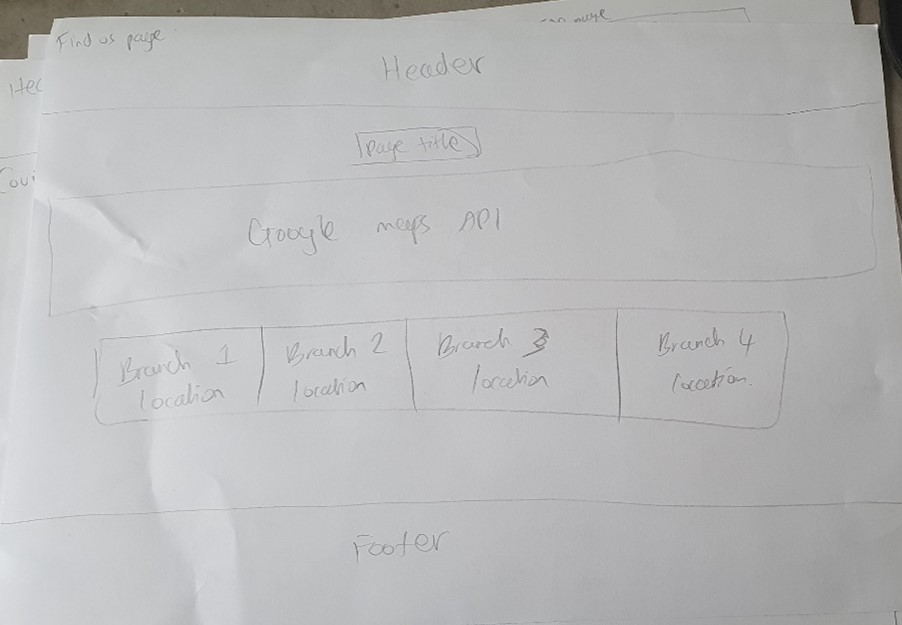 Find us page
Header
Page title
Google maps API
Branch 1
location
Branch 2
location
Branch 3
location
Branch 4
location.
Footer
Hec
Covi